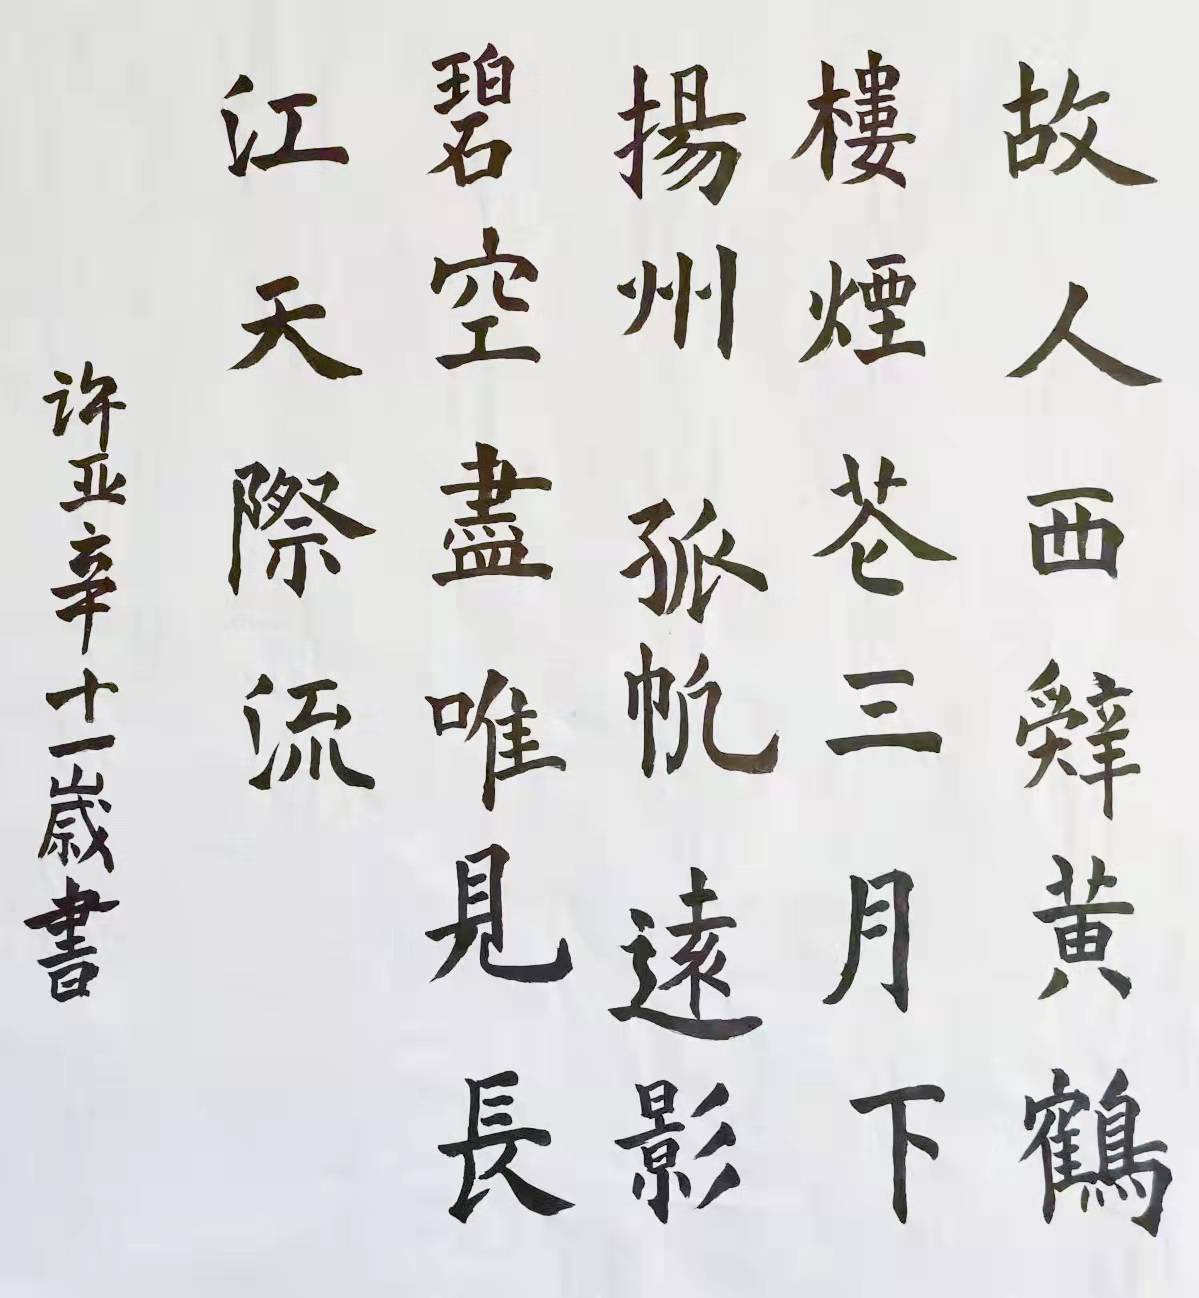 故人西辤黄鶴
樓煙苍三月下
揚州孤帆遠影
碧空盡唯見長
江天際流
许亚辛十一嵗書